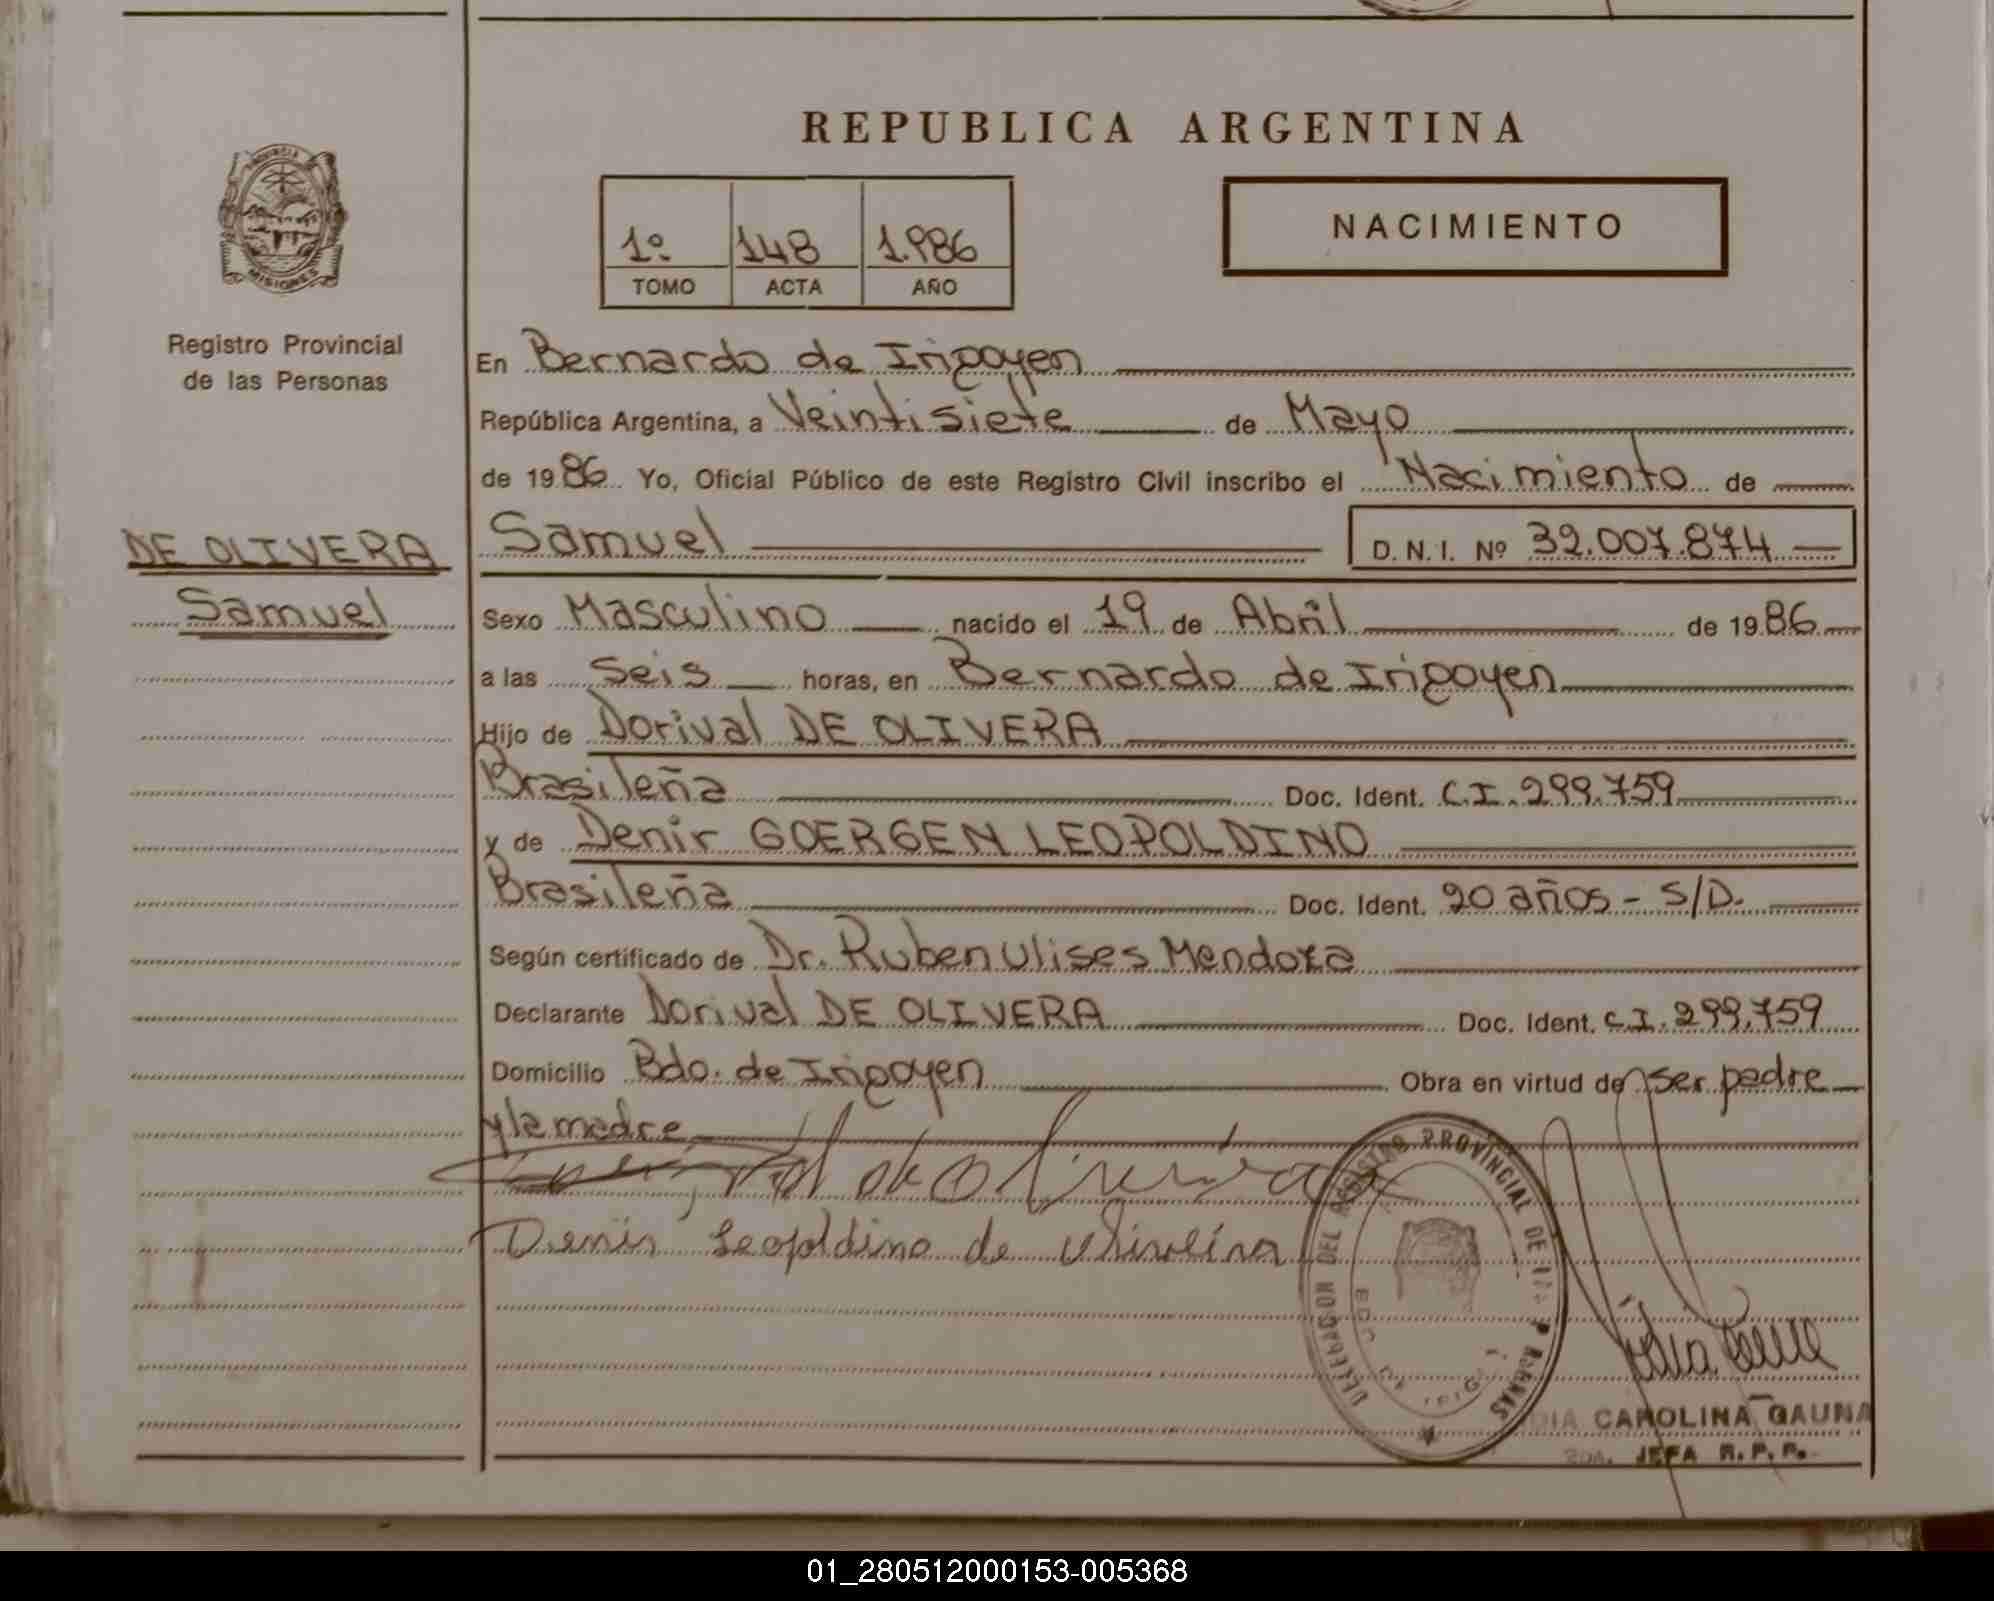 REPUBLICA ARGENTINA
PROVINCIA
MISIONES
Registro Provincial
de las Personas
1º 148 1.986
TOMO ACTA AÑO
NACIMIENTO
En Bernardo de Irigoyen
República Argentina, a Veintisiete de Mayo
de 1986 Yo, Oficial Público de este Registro Civil inscribo el Nacimiento de
DE OLIVERA
Samuel
Samuel D.N.I. Nº 32.007.874
Sexo Masculino nacido el 19 de Abril de 1986
a las seis horas, en Bernardo de Irigoyen
Hijo de Dorival DE OLIVERA
Brasileña Doc. Ident. C.I. 299.759
y de Denir GOERGEN LEOPOLDINO
Brasileña Doc. Ident. 20 años - S/D.
Según certificado de Dr. Ruben Ulises Mendoza
Declarante Dorival DE OLIVERA Doc. Ident. C.I. 299.759
Domicilio Bdo. de Irigoyen Obra en virtud de ser padre
y la madre
de Oliveira
Denir Leopoldino de Oliveira
DELEGACION DEL REGISTRO PROVINCIAL DE LAS PERSONAS
BDO DE IRIG
CAROLINA GAUNA
JEFA R.P.P.
01_280512000153-005368